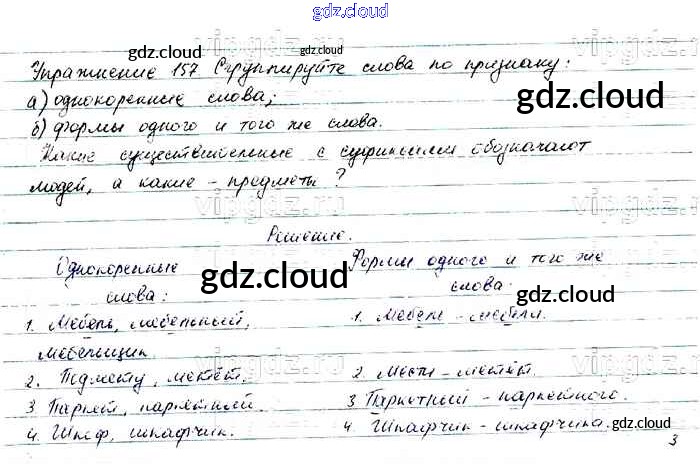 gdz.cloud
vipgdz.ru
gdz.cloud gdz.cloud
Упражнение 157 Сгруппируйте слова по признаку:
а) однокоренные слова;
gdz.cloud
б) формы одного и того же слова.
Какие существительные с суффиксами обозначают
gdz.cloud
людей, а какие - предметы?
vipgdz.ru
Решение.
Однокоренные слова:
gdz.cloud
Формы одного и того же слова.
gdz.cloud
1. Мебель, мебельный, мебельщик.
1. Мебель - мебели.
vipgdz.ru
2. Подмету, метёт.
2. Мести - метёт.
3 Паркет, паркетный.
3 Паркетный - паркетного.
gdz.cloud
4. Шкаф, шкафчик.
4. Шкафчик - шкафчика.
gdz.cloud
3